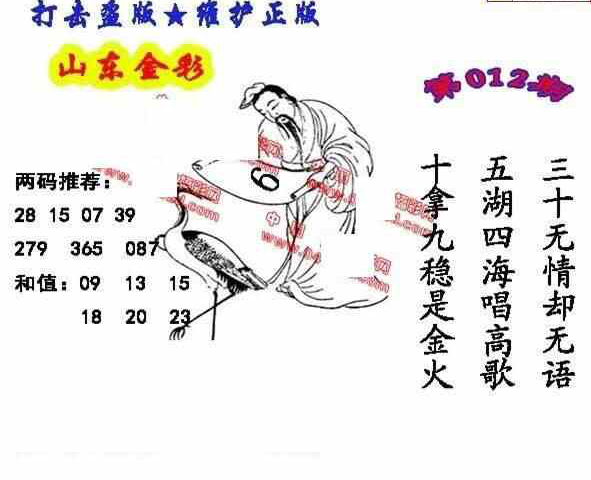 打击盗版★维护正版
山东金彩
第012期
两码推荐：
28 15 07 39
279 365 087
和值：09 13 15
18 20 23
6
三十无情却无语
五湖四海唱高歌
十拿九稳是金火